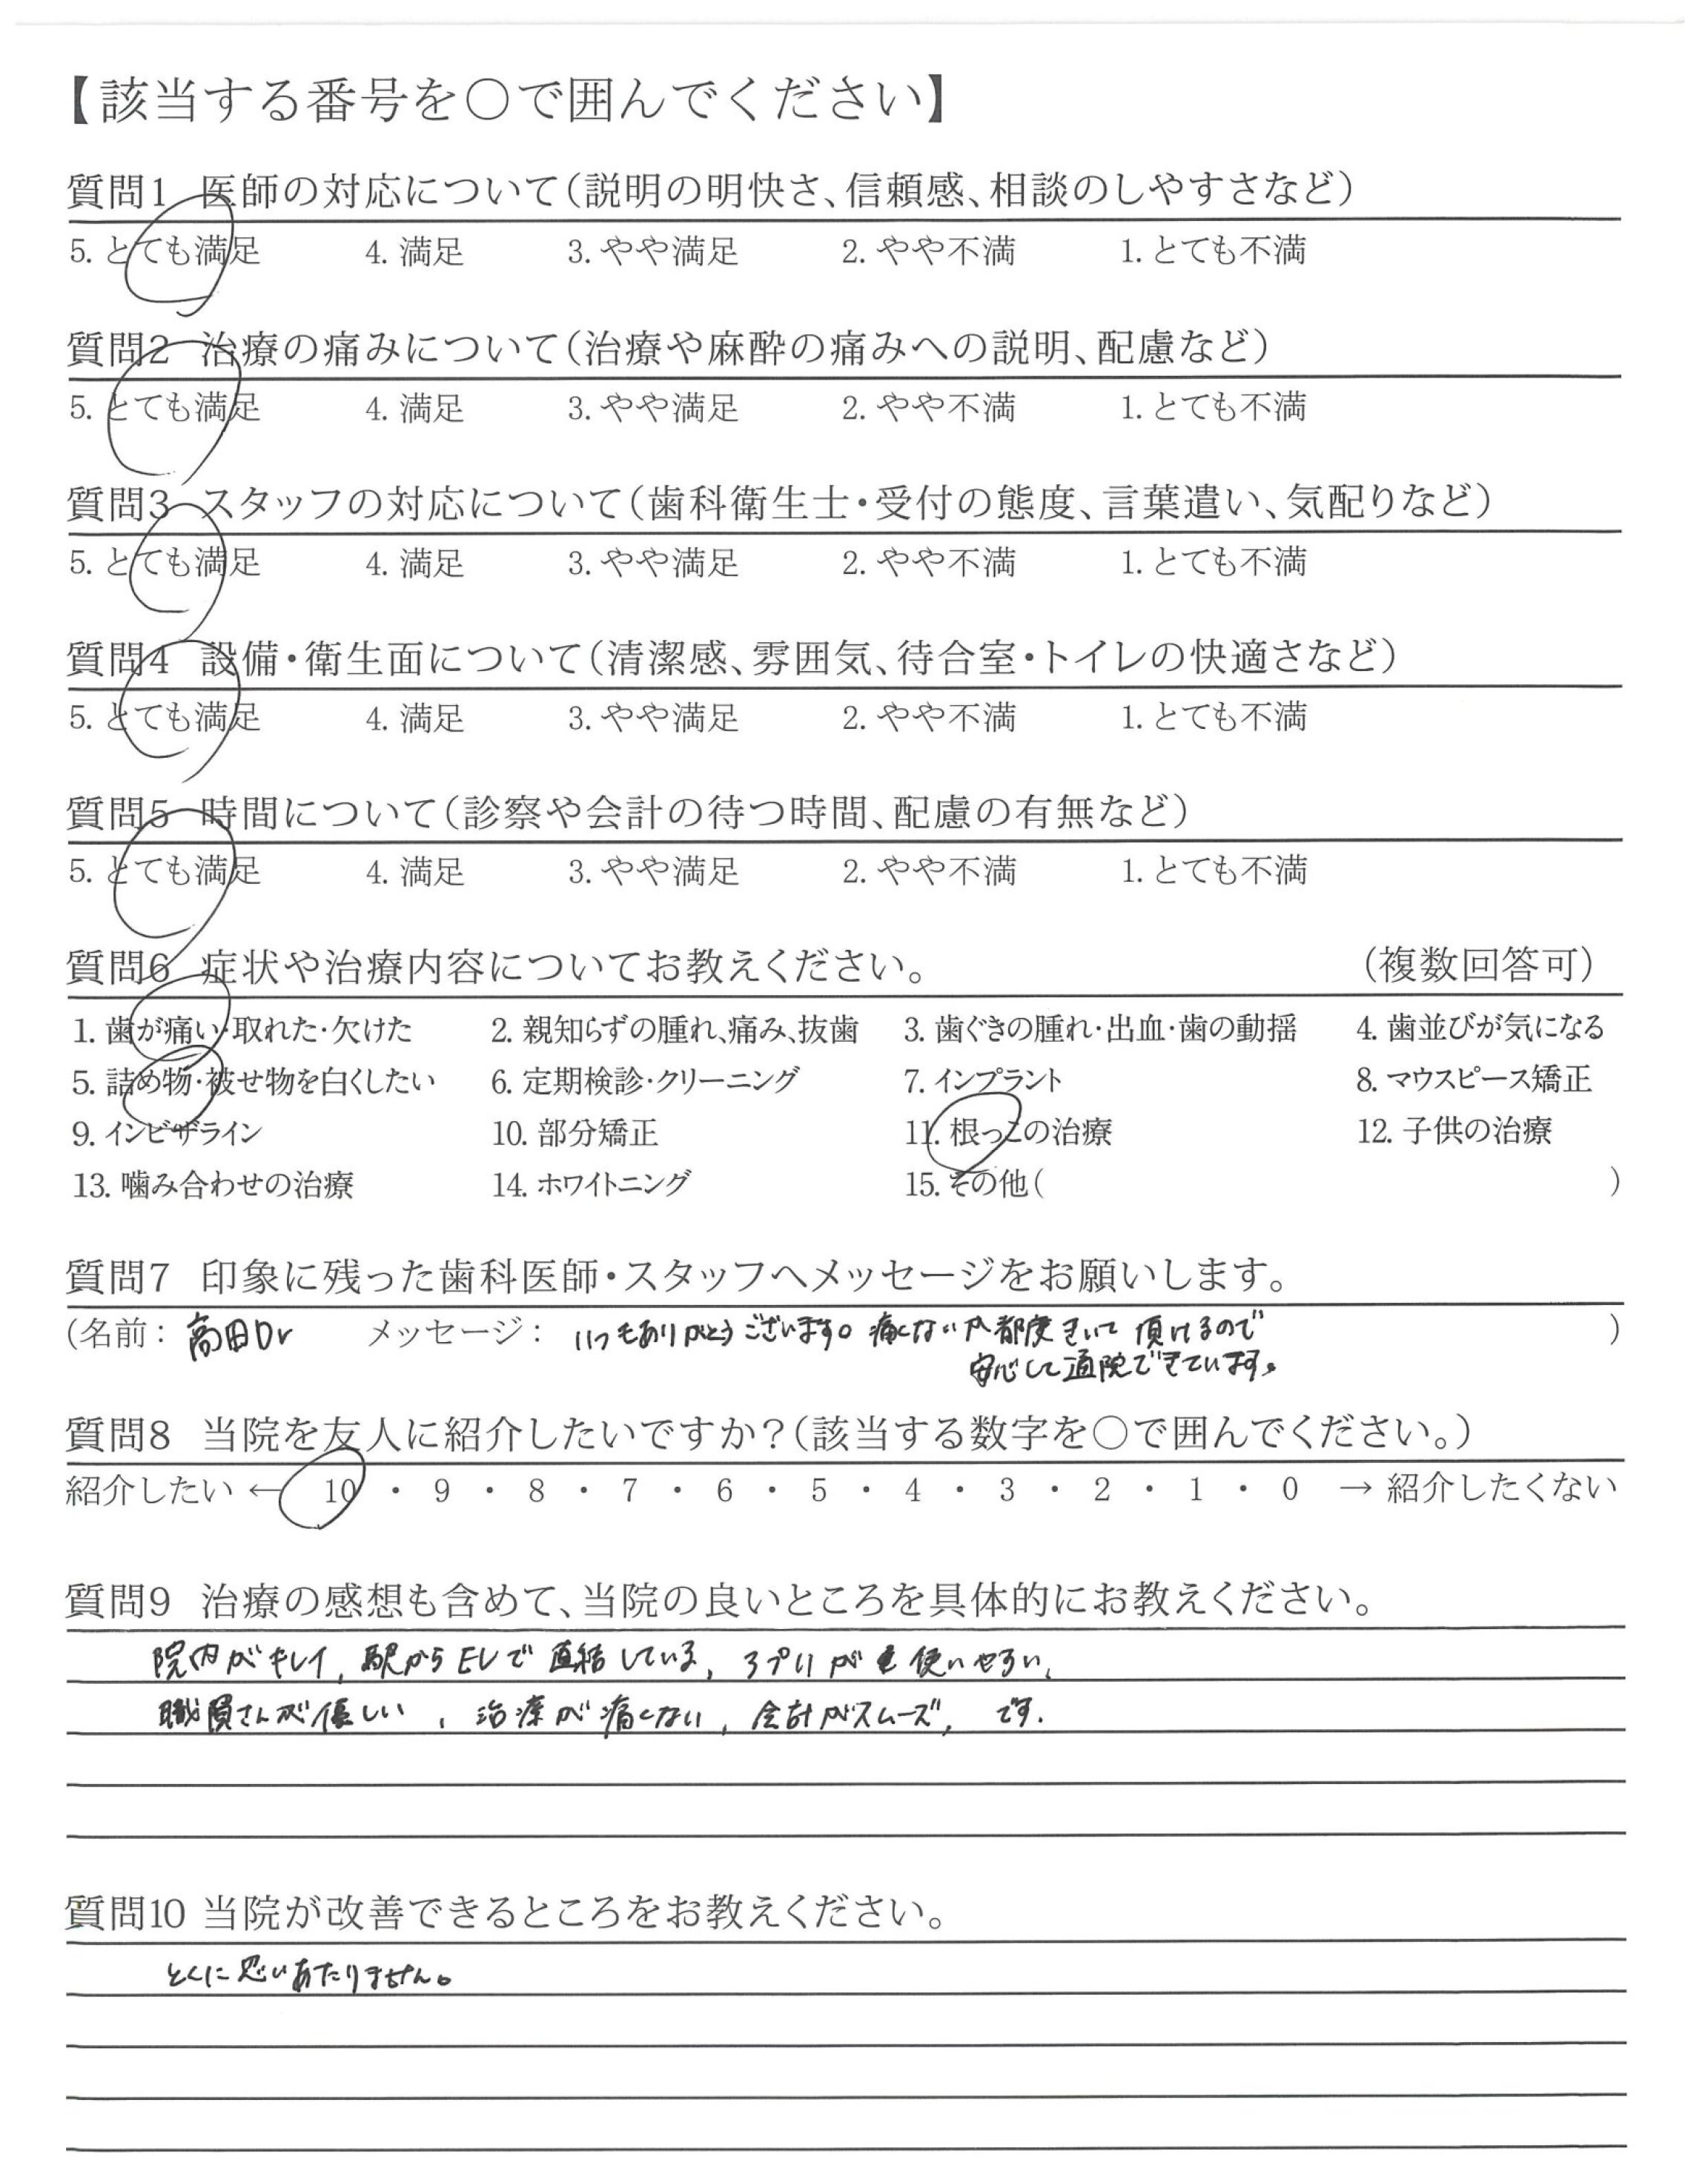 【該当する番号を〇で囲んでください】
質問1 医師の対応について(説明の明快さ、信頼感、相談のしやすさなど)
5. とても満足 4. 満足 3. やや満足 2. やや不満 1. とても不満
質問2 治療の痛みについて(治療や麻酔の痛みへの説明、配慮など)
5. とても満足 4. 満足 3. やや満足 2. やや不満 1. とても不満
質問3 スタッフの対応について(歯科衛生士・受付の態度、言葉遣い、気配りなど)
5. とても満足 4. 満足 3. やや満足 2. やや不満 1. とても不満
質問4 設備・衛生面について(清潔感、雰囲気、待合室・トイレの快適さなど)
5. とても満足 4. 満足 3. やや満足 2. やや不満 1. とても不満
質問5 時間について(診察や会計の待つ時間、配慮の有無など)
5. とても満足 4. 満足 3. やや満足 2. やや不満 1. とても不満
質問6 症状や治療内容についてお教えください。 (複数回答可)
1. 歯が痛い・取れた・欠けた 2. 親知らずの腫れ、痛み、抜歯 3. 歯ぐきの腫れ・出血・歯の動揺 4. 歯並びが気になる
5. 詰め物・被せ物を白くしたい 6. 定期検診・クリーニング 7. インプラント 8. マウスピース矯正
9. インビザライン 10. 部分矯正 11. 根っこの治療 12. 子供の治療
13. 噛み合わせの治療 14. ホワイトニング 15. その他( )
質問7 印象に残った歯科医師・スタッフへメッセージをお願いします。
(名前: 高田Dr メッセージ: いつもありがとうございます。痛くないか都度きいて頂けるので )
安心して通院できています。
質問8 当院を友人に紹介したいですか?(該当する数字を〇で囲んでください。)
紹介したい ← 10 ・ 9 ・ 8 ・ 7 ・ 6 ・ 5 ・ 4 ・ 3 ・ 2 ・ 1 ・ 0 → 紹介したくない
質問9 治療の感想も含めて、当院の良いところを具体的にお教えください。
院内がキレイ、駅からEVで直結している、アプリが使いやすい、
職員さんが優しい、治療が痛くない、会計がスムーズ、です.
質問10 当院が改善できるところをお教えください。
とくに思いあたりません。